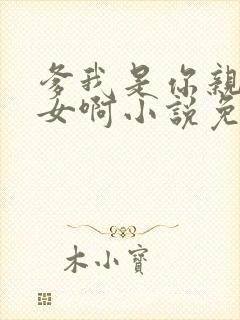 爹我是你親
女啊小說免
木小寶